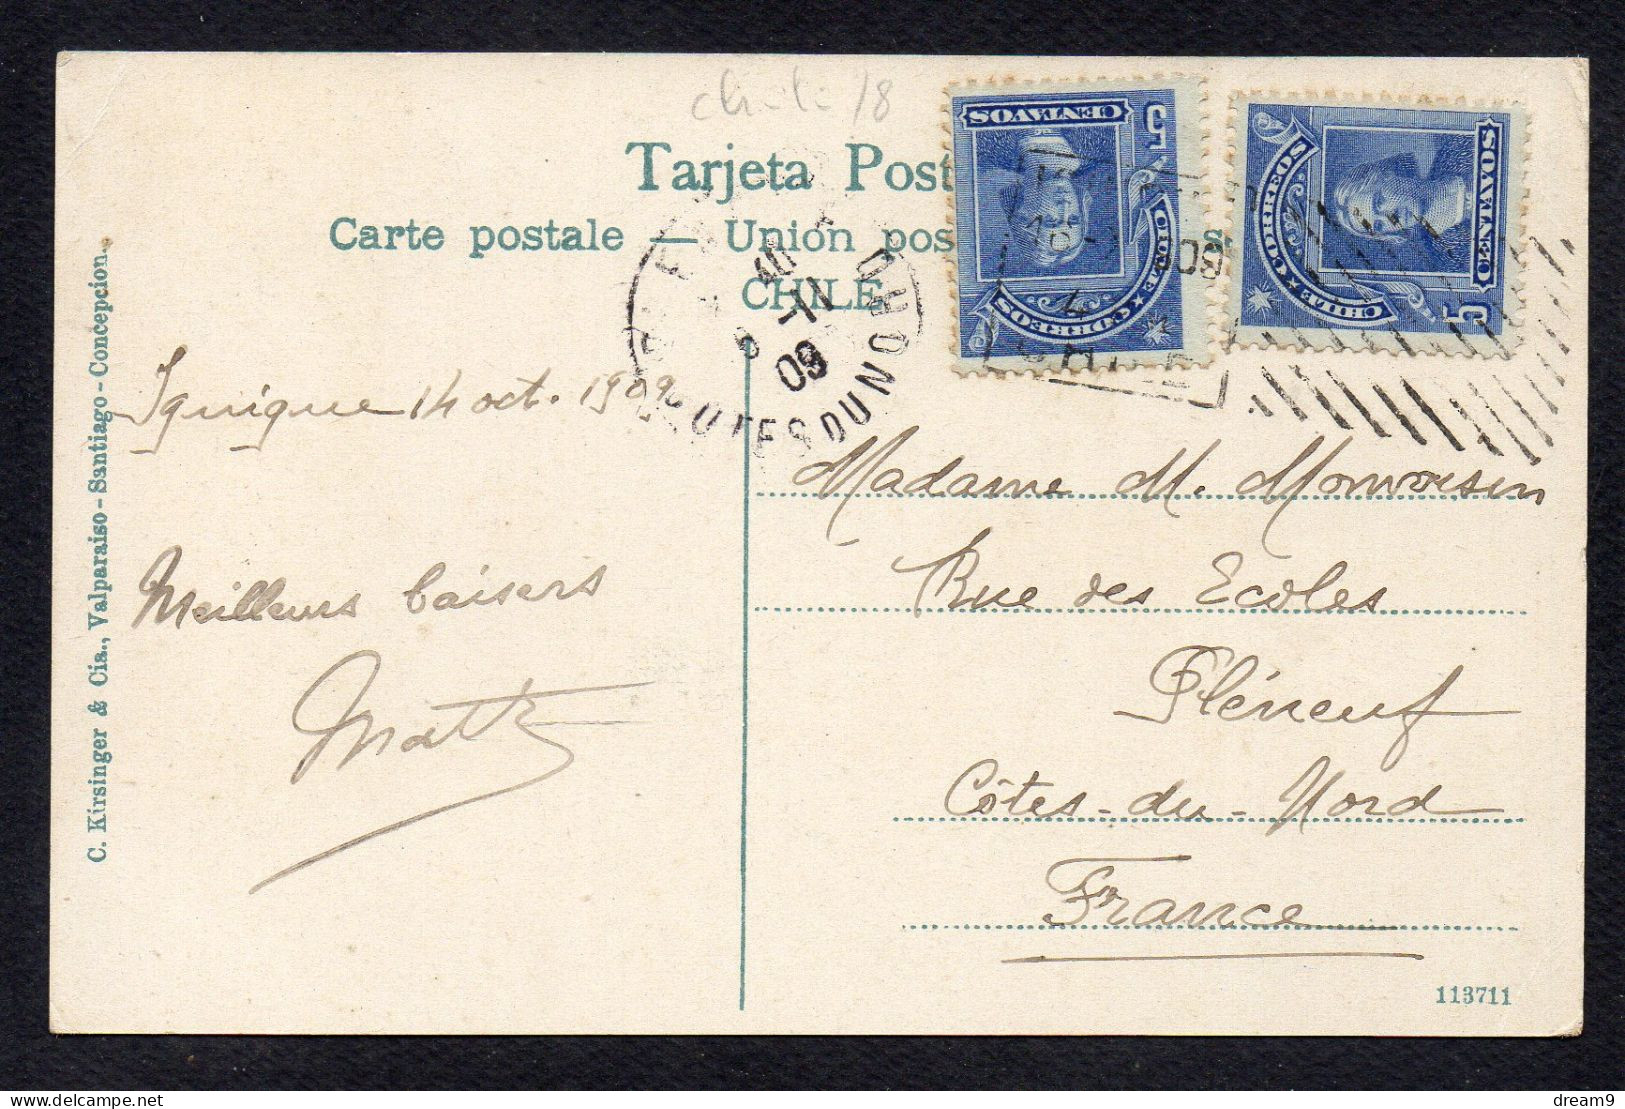 Chili 18
Tarjeta Post
Carte postale — Unión pos
CHILE
CENTAVOS
5
CHILE CORREOS
CENTAVOS
5
CHILE CORREOS
CHILE
40
8 -11
09
COTES DU NORD
Iquique 14 oct. 1909
Meilleurs baisers
Madame M. Monvoisin
Rue des Ecoles
Pléneuf
Côtes-du-Nord
France
C. Kirsinger & Cia., Valparaiso - Santiago - Concepcion.
113711
dream9